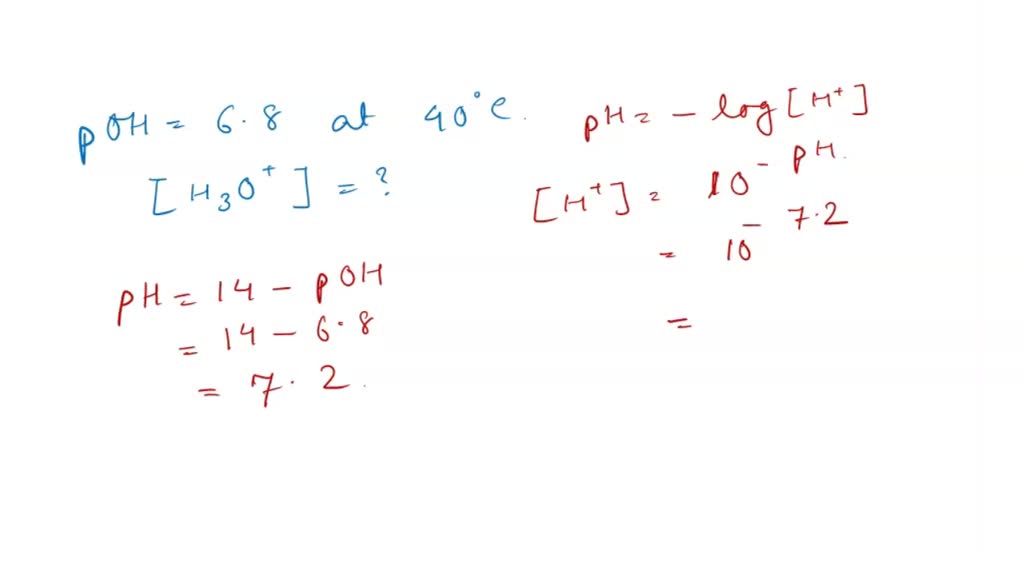 pOH = 6.8 at 40°C.
[H₃O⁺] = ?
pH = 14 - pOH
= 14 - 6.8
= 7.2.
pH = - log [H⁺]
[H⁺] = 10^-pH.
= 10^-7.2
=